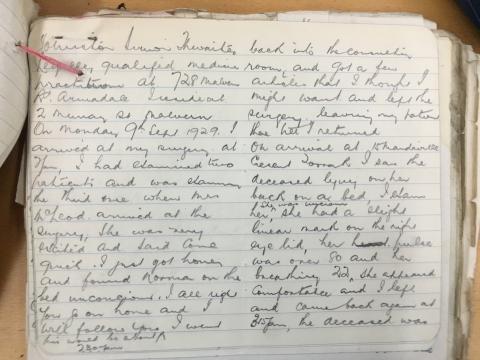 Johnston Simon Thwaites
legally qualified medical
practitioner at 728 Malvern
Rd. Armadale I reside at
2 Murray St Malvern
On Monday 9th Sept 1929 I
arrived at my surgery at
2pm, I had examined two
patients and was examining
the third one when Mrs
McLeod arrived at the
surgery, She was very
excited and said Come
quick I just got home
and found Norma on the
bed unconscious. I all right
you go on home and I
will follow you I went
this would be about
2.30pm
back into the consulting
room, and got a few
articles that I thought I
might want and left the
surgery leaving my patient
there till I returned
On arrival at 15 Mandeville
Crescent Toorak I saw the
deceased lying on her
back on a bed, I
she was unconscious
her, she had a slight
linear mark on the right
eye lid, her pulse
was over 80 and her
breathing 22, she appeared
comfortable and I left
and came back again at
3.15pm, the deceased was